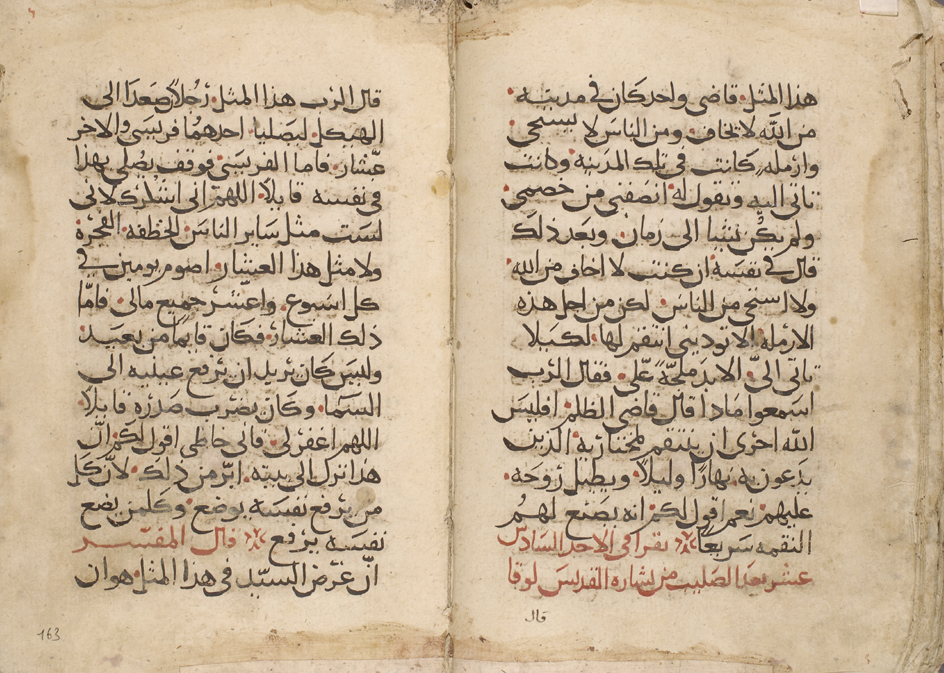 هذا المثل قاضي واحد كان في مدينه
من الله لا يخاف ومن الناس لا يستحي
وارمله كانت في تلك المدينه وكانت
تاتي اليه وتقول له انصفني من خصمي
ولم يكن يشا الى زمان وبعد ذلك
قال في نفسه ان كنت لا اخاف من الله
ولا استحي من الناس لكن من اجل هذه
الارمله الا توديني انتقم لها لكيلا
تاتي الىّ الابد ملحّة علّي فقال الرب
اسمعوا ماذا قال قاضي الظلم افليس
الله احرى ان ينتقم لمختاريه الذين
يدعون به نهارًا وليلًا ويطيل روحه
عليهم نعم اقول لكم انه يصنع لهم
النقمه سريعًا يقرا في الاحد السادس
عشر بعد الصليب من بشاره القديس لوقا
قال
قال الرب هذا المثل رجلان صعدا الى
الهيكل ليصليا احدهما فريسي والاخر
عشار فاما الفريسي فوقف يصلي بهذا
في نفسه قايلًا اللهم اني اشكرك لاني
لست مثل ساير الناس الخطفه الفجره
ولا مثل هذا العشار اصوم يومين في
كل اسبوع واعشر جميع مالي فامّا
ذلك العشار فكان قايمًا من بعيد
وليس كان يريد ان يرفع عينيه الى
السما وكان يضرب صدره قايلًا
اللهم اغفر لي فاني خاطي اقول لكم انّ
هذا نزل الى بيته ابرّ من ذلك لانّ كل
من يرفع نفسه يوضع وكلمن يضع
نفسه يرفع قال المفسر
انّ غرض السيّد في هذا المثل هو ان
163